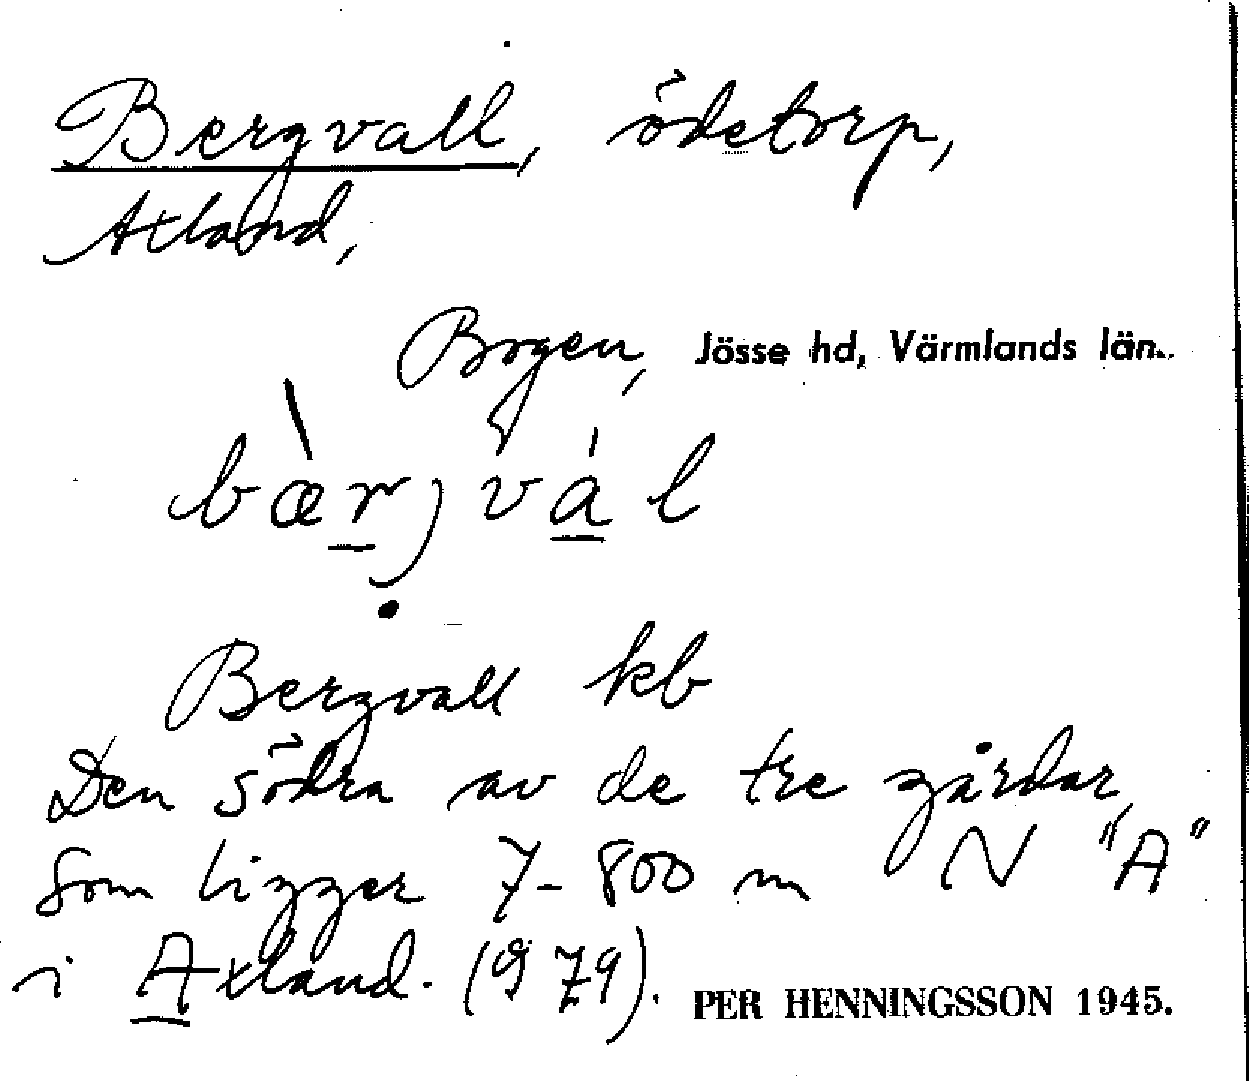 Bergvall, ödetorp,
Axland,
Bogen, Jösse hd, Värmlands län.
bæ̀r̲j vá̲l
Bergvall kb
Den södra av de tre gårdar
som ligger 7-800 m N "A"
i Axland. (979).
PER HENNINGSSON 1945.